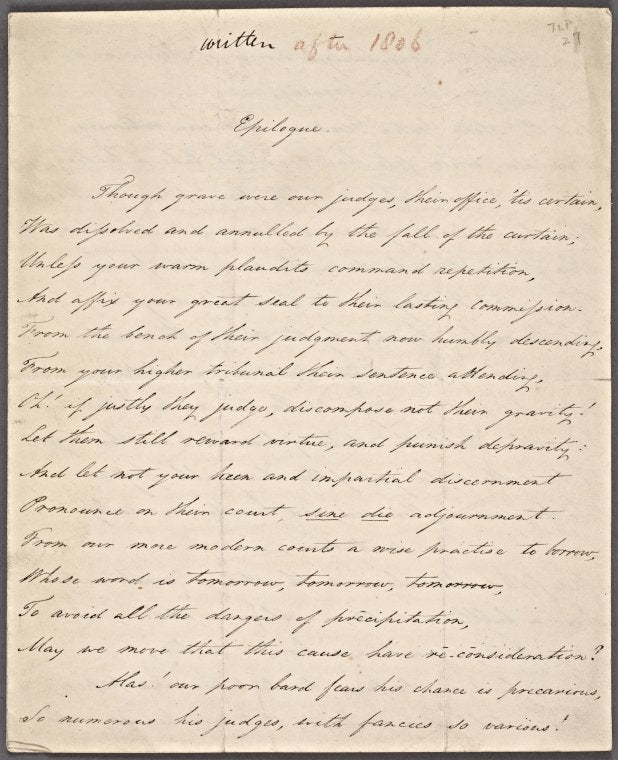 written after 1806
TLP
27
Epilogue.
Though grave were our judges, their office, 'tis certain,
Was dissolved and annulled by the fall of the curtain;
Unless your warm plaudits command repetition,
And affix your great seal to their lasting commission.
From the bench of their judgment now humbly descending,
From your higher tribunal their sentence attending,
Oh! if justly they judge, discompose not their gravity!
Let them still reward virtue, and punish depravity:
And let not your keen and impartial discernment
Pronounce on their court, sine die adjournment.
From our more modern courts a wise practise to borrow,
Whose word is tomorrow, tomorrow, tomorrow,
To avoid all the dangers of precipitation,
May we move that this cause have rē-cōnsideration?
Alas! our poor bard fears his chance is precarious,
So numerous his judges, with fancies so various!